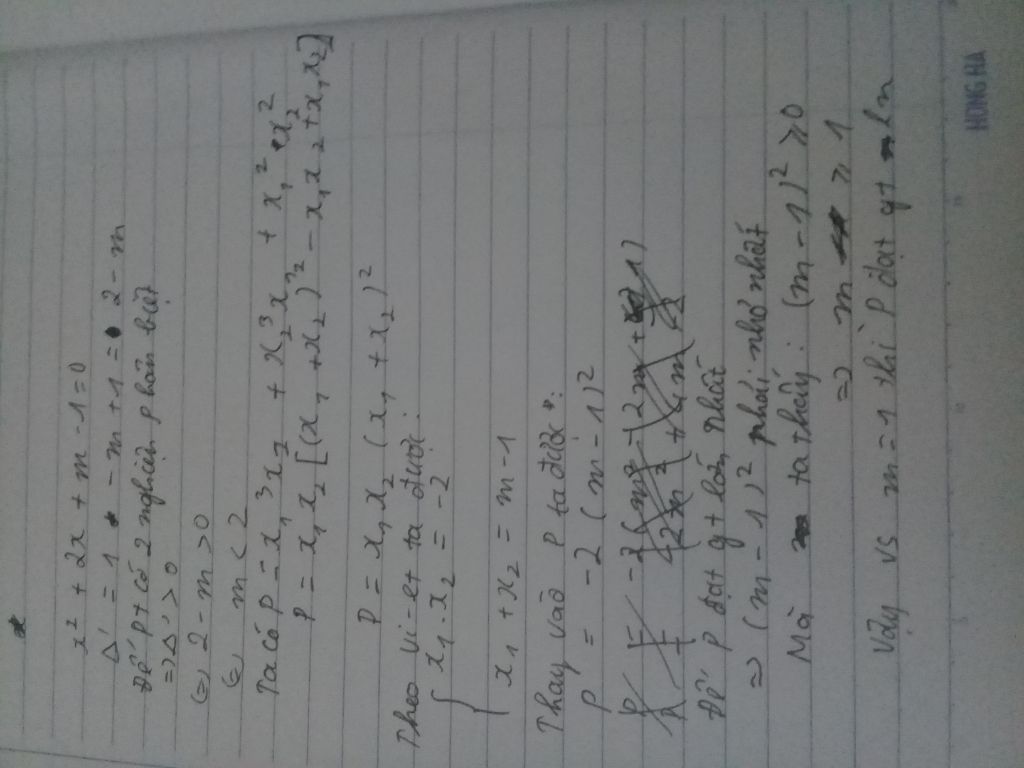 x² + 2x + m - 1 = 0
Δ' = 1 - m + 1 = 2 - m
Để pt có 2 nghiệm phân biệt
=> Δ' > 0
(=) 2 - m > 0
(=) m < 2
Ta có P = x₁³x₂ + x₂³x₂ + x₁²x₂²
P = x₁x₂[(x₁+x₂)² - x₁x₂ + x₁x₂]
P = x₁x₂(x₁+x₂)²
Theo Vi-et ta được:
{ x₁.x₂ = -2
x₁ + x₂ = m - 1
Thay vào P ta được:
P = -2(m - 1)²
Để P đạt gt lớn nhất
=> (m - 1)² phải nhỏ nhất
Mà ta thấy: (m - 1)² ≥ 0
=) m ≥ 1
Vậy vs m = 1 thì P đạt gt ln
HONG HA